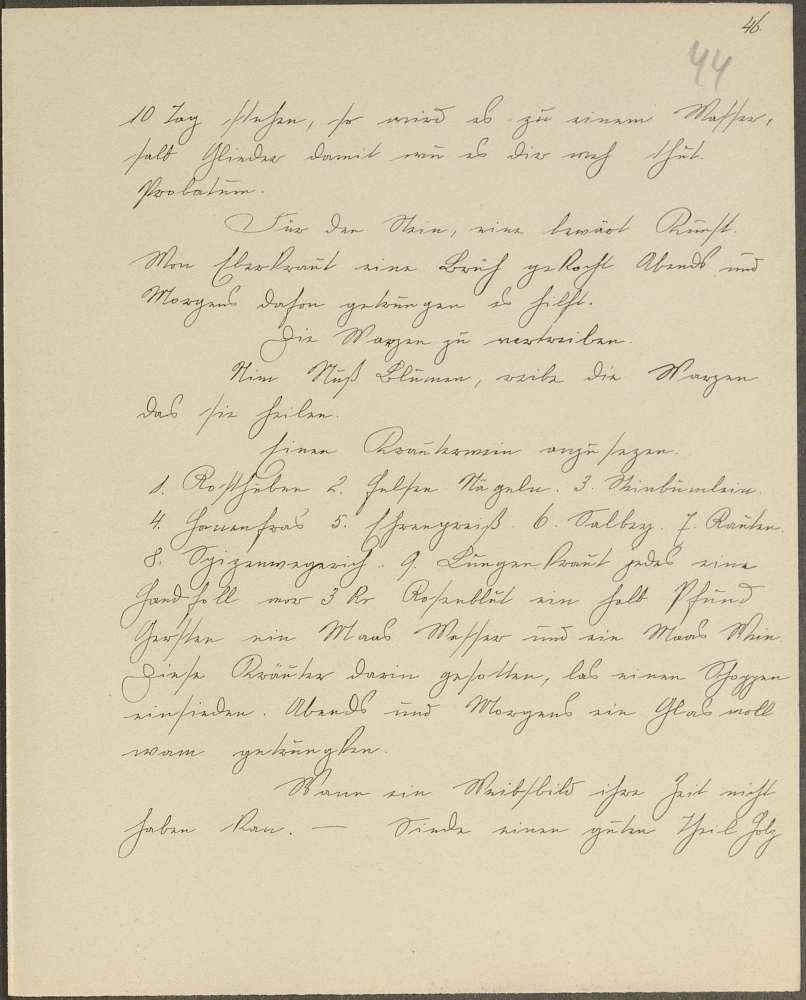 46.
44
10 Tag stehen, so wird es zu einem Wasser,
salb Glieder damit wu es dir weh thut.
Probatum.
Für den Stein, eine bewärt Kunst.
Von Eberkraut eine Brüh gekocht Abends und
Morgens dafon getrungen es hilft.
Die Warzen zu vertreiben.
Nim Nuß Blumen, reibe die Warzen
das sie heilen.
Einen Kräuterwein anzusezen.
1. 2. Felsen Nägeln. 3. Steinbümlein.
4. 5. Ehrenpreiß. 6. Salbey. 7. Rauten.
8. Spizenwegerich. 9. Lungenkraut jedes eine
Handfoll vor 3 Kr Rosenblut ein halb Pfund
Gersten ein Maas Wasser und ein Maas Wein.
Diese Kräuter darin gesotten, las einen Schoppen
einsieden. Abends und Morgens ein Glas voll
warm getrungken.
Wann ein Weibsbild ihre Zeit nicht
haben kan. — Siede einen guten Theil Holz